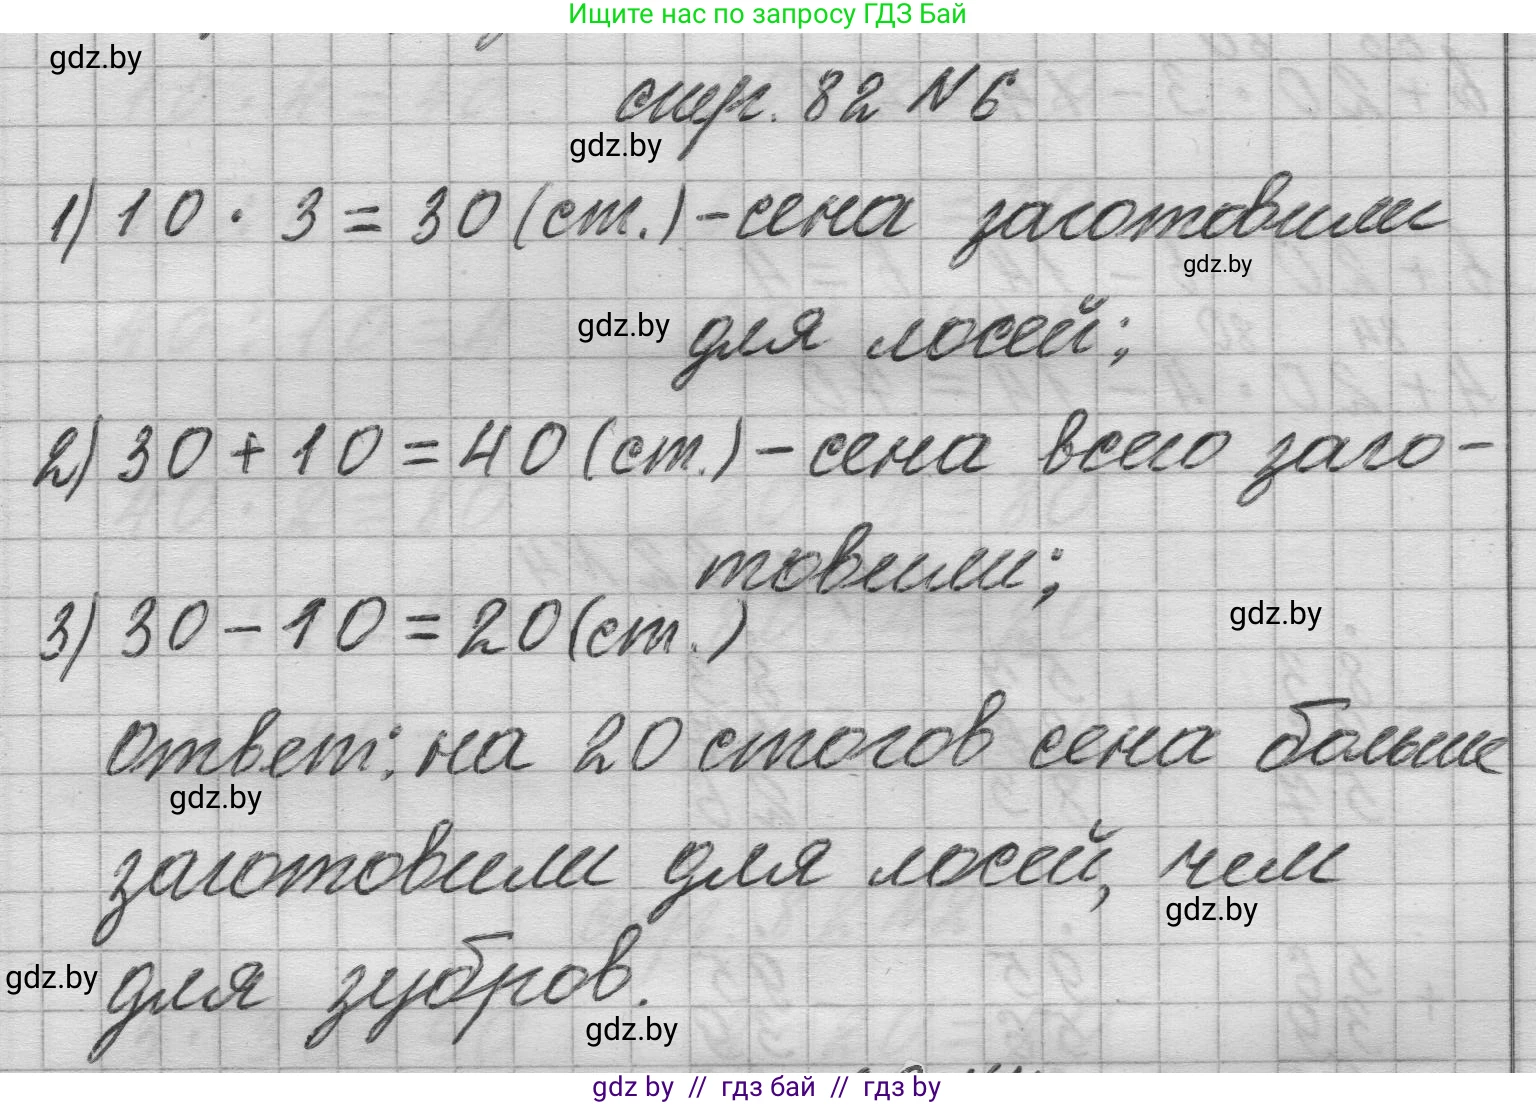 Ищите нас по запросу ГДЗ Бай
gdz.by
стр. 82 N 6
gdz.by
1) 10 · 3 = 30 (ст.) - сена заготовили
gdz.by
gdz.by
для лосей;
2) 30 + 10 = 40 (ст.) - сена всего заго-
товили;
gdz.by
3) 30 - 10 = 20 (ст.)
Ответ: на 20 стогов сена больше
gdz.by
заготовили для лосей, чем
gdz.by
gdz.by
для зубров.
gdz.by
gdz by // гдз бай // гдз by